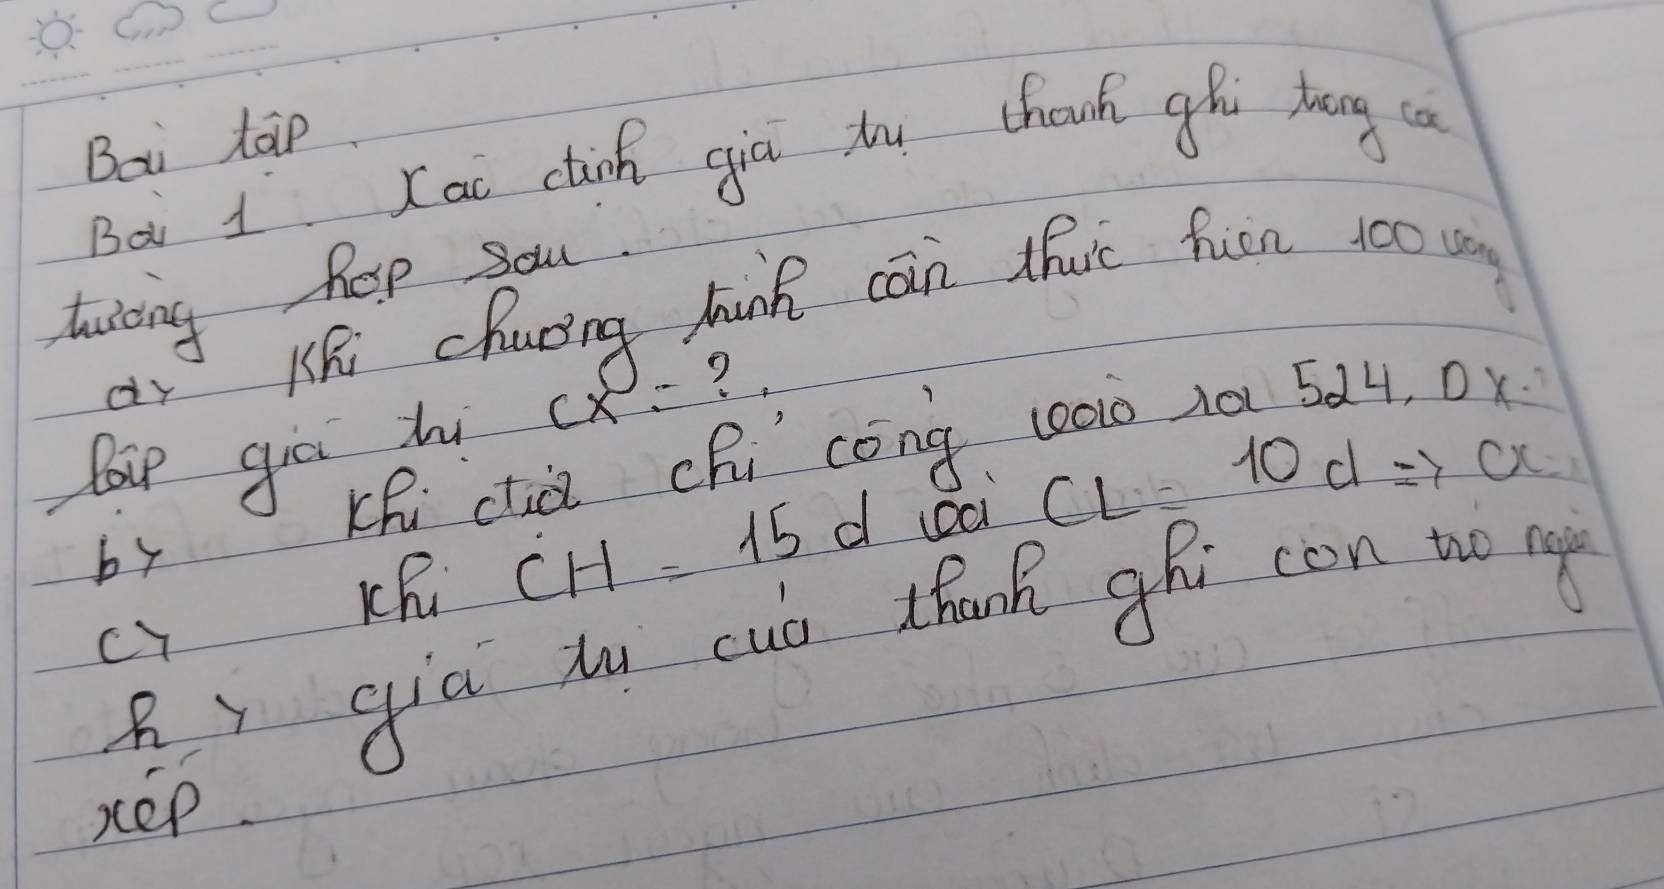 Bài tập.
Bài 1. Xác định giá trị thanh ghi trong các
trường hợp sau.
a> Khi chương trình cần thực hiện 100 vòng
lặp giá trị CX = ?.
b> Khi địa chỉ cổng vào ra 524, DX = ?
c> Khi CH = 15d và CL = 10d => CX =
h> giá trị của thanh ghi con trỏ ngăn
xếp.